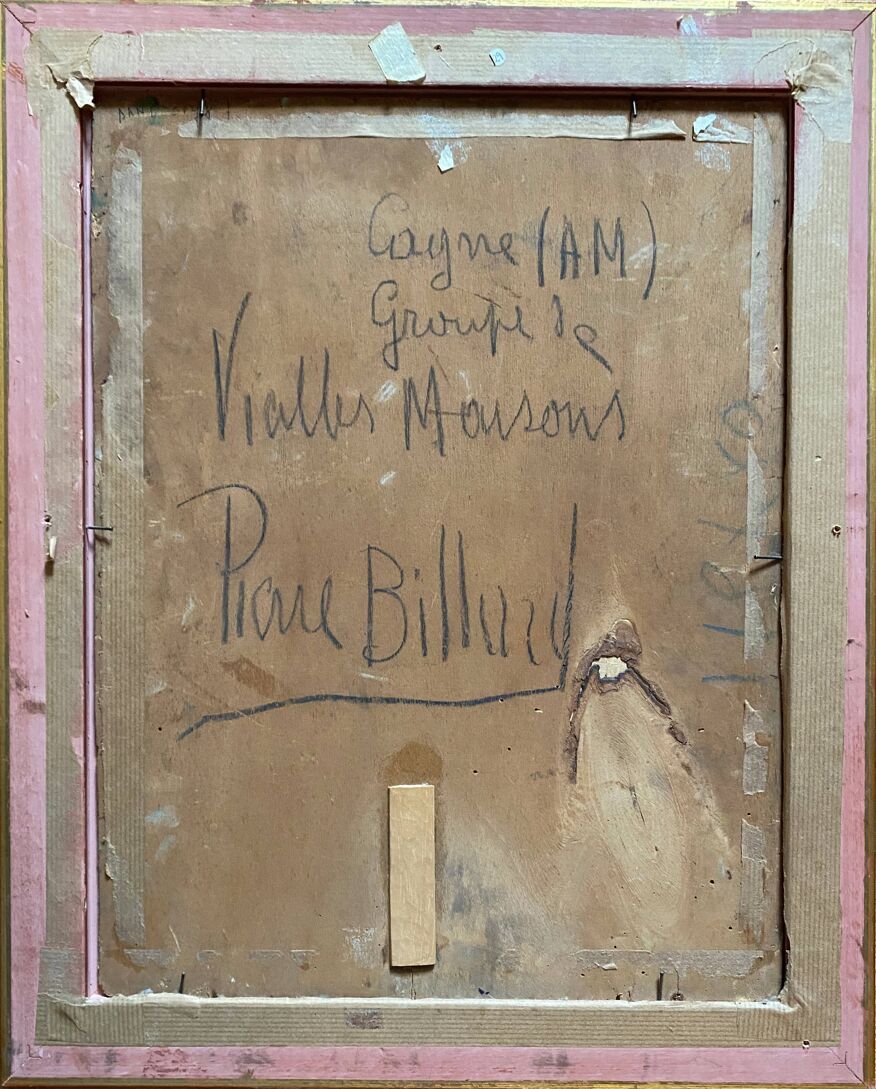 Cagne (AM)
Groupe de
Vialles Maisons
Pierre Billard